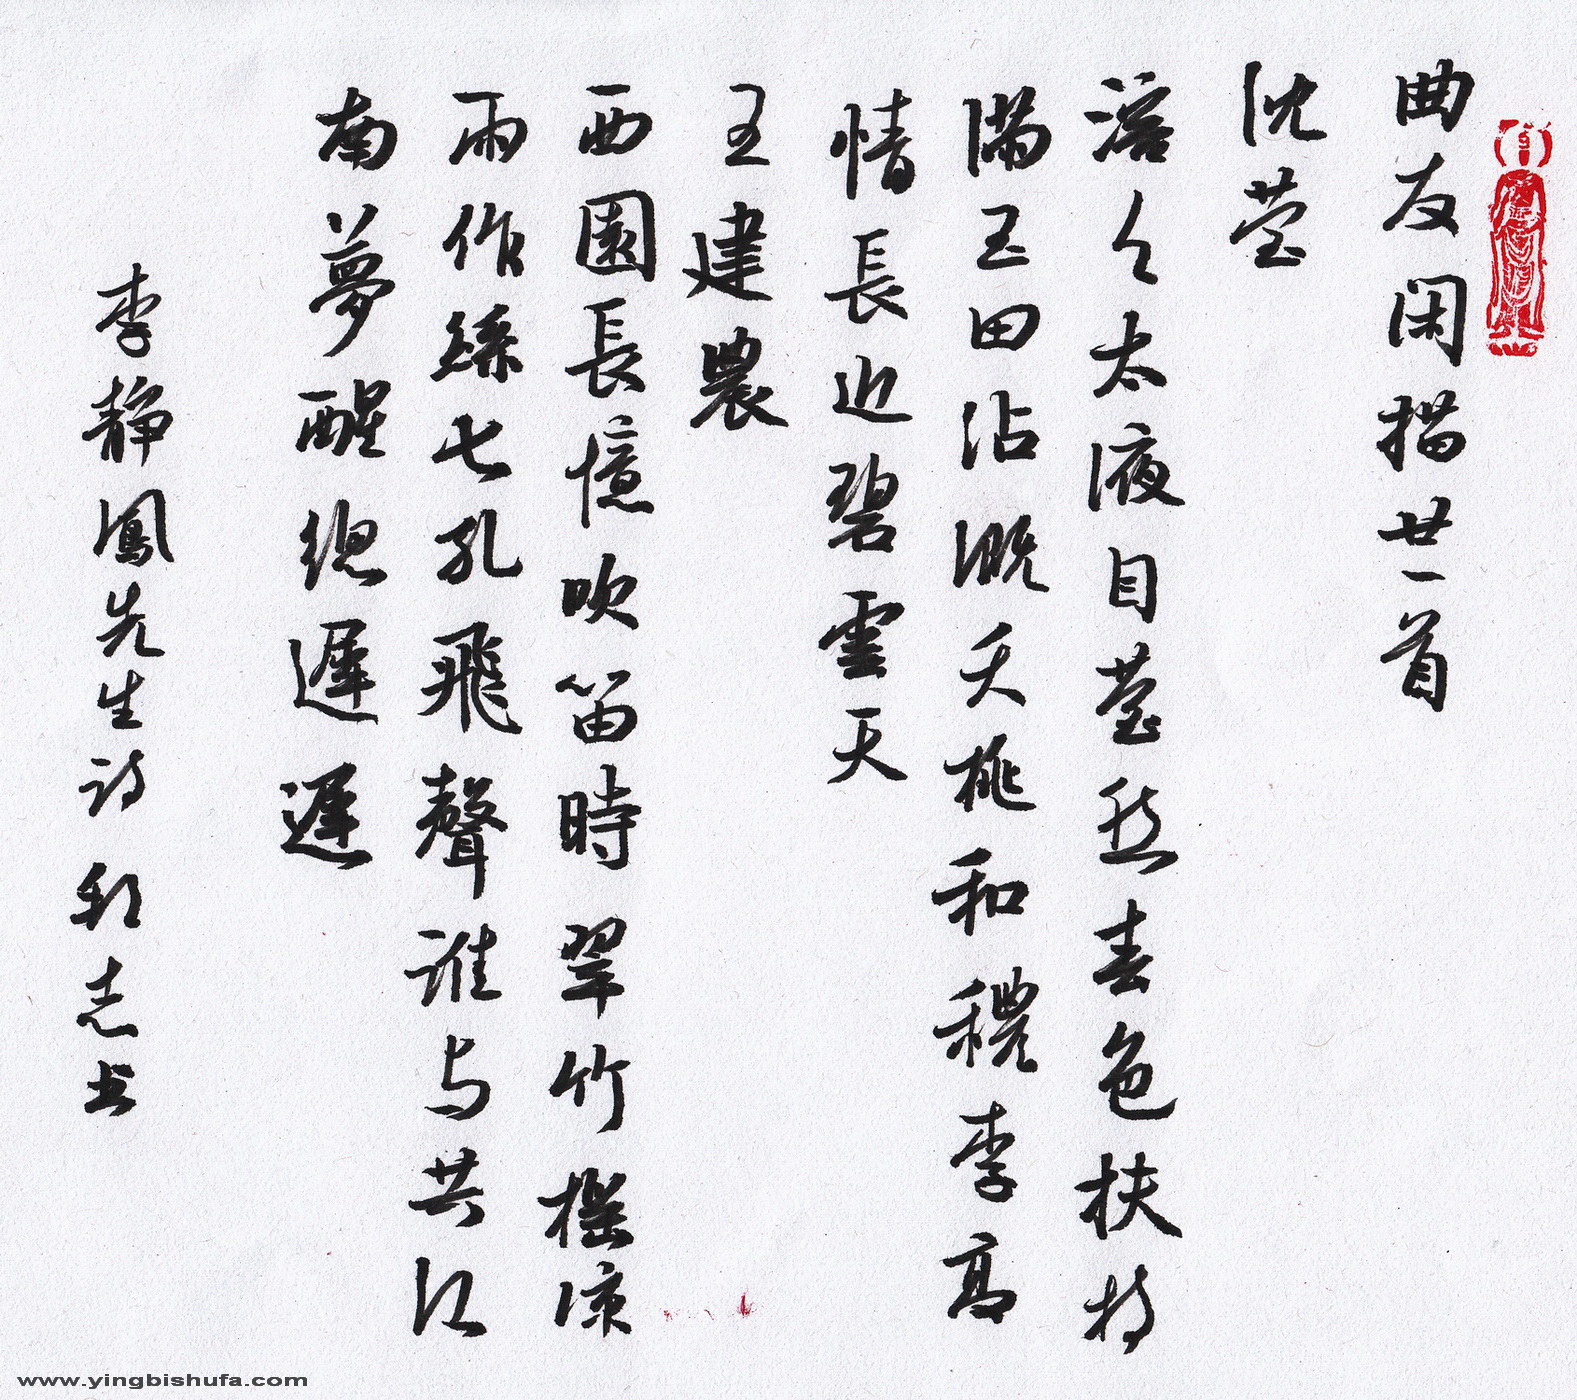 曲友闲描廿一首
沈莹
溶々太液目莹然春色扶持
满玉田沾溉夭桃和穠李高
情長近碧雲天
王建農
西園長憶吹笛時翠竹摇凉
雨作絲七孔飛聲谁与共江
南夢醒總遲遲
李静鳳先生诗 志书
www.yingbishufa.com